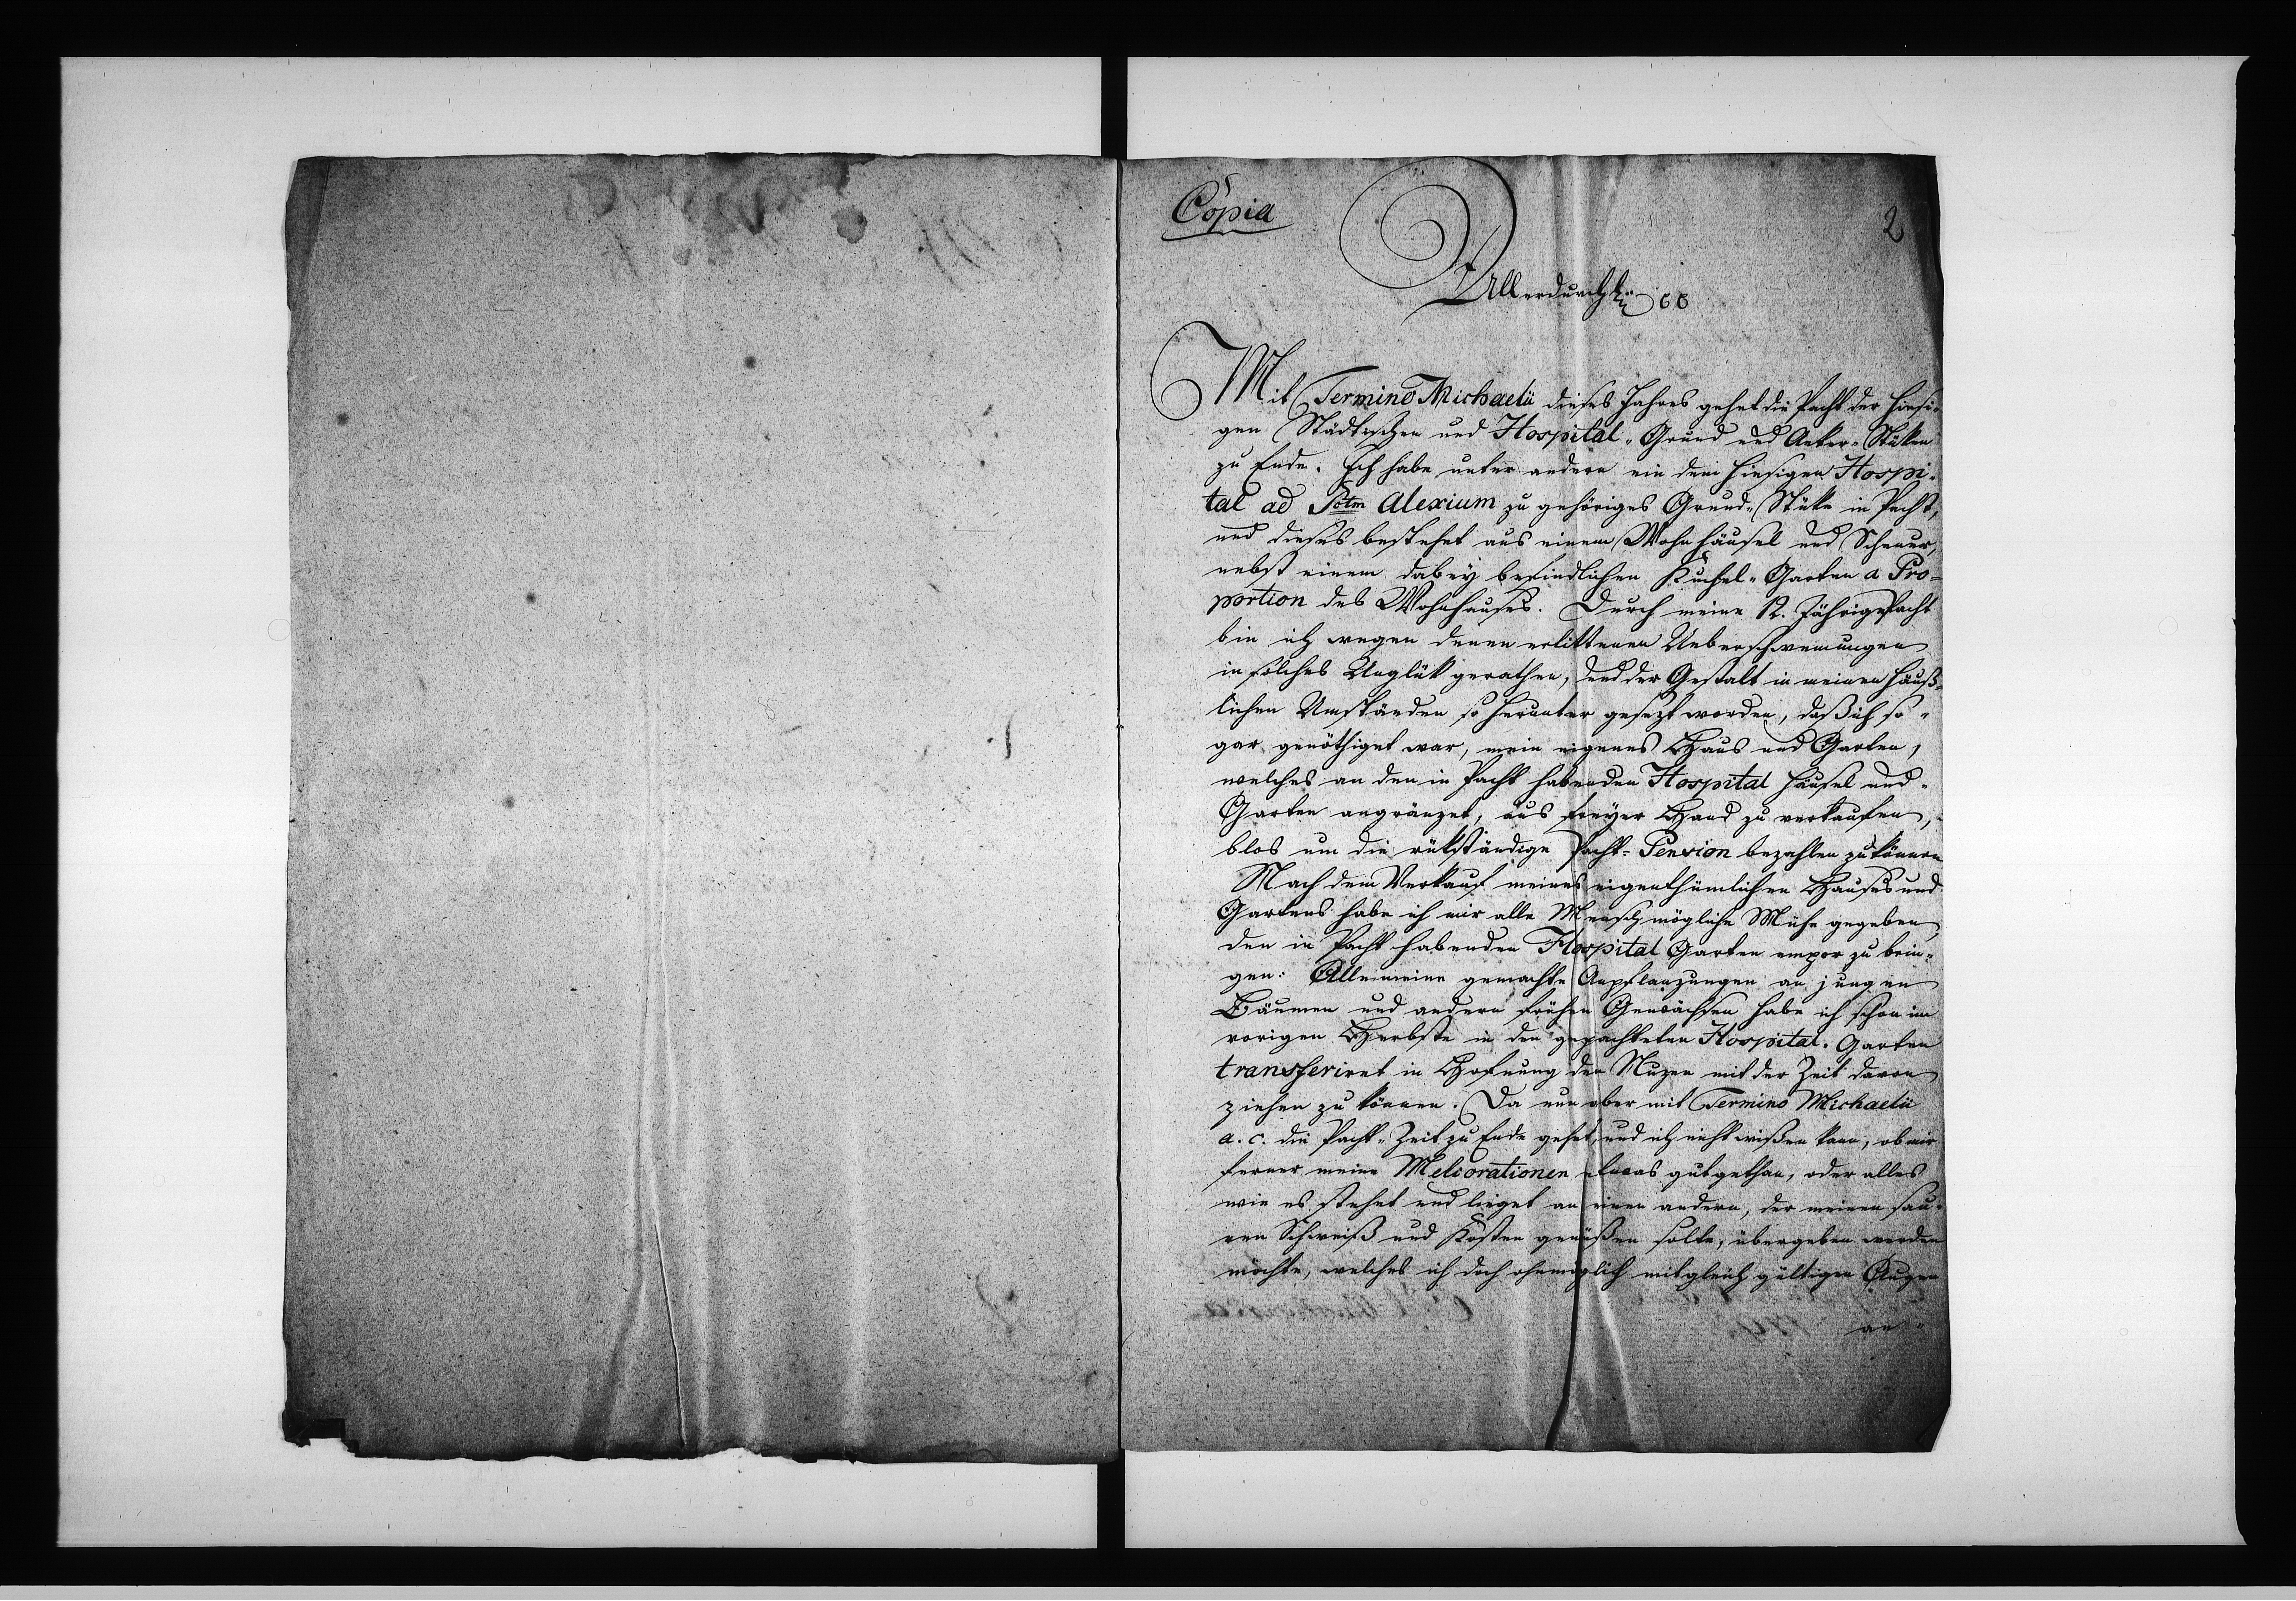 Copia
2
Allerdurchl. ec
Mit Termino Michaelis dieses Jahres gehet die Pacht der hiesi-
gen Städtischen und Hospital-Grund und Acker-Stüken
zu Ende. Ich habe unter andern ein dem hiesigen Hospi-
tal ad Sctm Alexium zu gehöriges Grund-Stüke in Pacht,
und dieses bestehet aus einem Wohnhäusel und Scheuer,
nebst einem dabey befindlichen Kuchel-Garten a Pro-
portion des Wohnhauses. Durch meine 12. Jährige Pacht
bin ich wegen denen erlittenen Ueberschwemungen
in solches Unglük gerathen, und der Gestalt in meinen häuß-
lichen Umständen so herunter gesezt worden, daß ich so-
gar genöthiget war, mein eigenes Haus und Garten,
welches an den in Pacht habenden Hospital häusel und-
Garten angränzet, aus freyer Hand zu verkaufen,
blos um die rükständige Pacht-Pension bezahlen zu können
Nach dem Verkauf meines eigenthümlichen Hauses und
Gartens habe ich mir alle Menschmögliche Mühe gegeben,
den in Pacht habenden Hospital Garten empor zu brin-
gen: Alle meine gemachte Anpflanzungen an jungen
Bäumen und andern frühen Gewächsen habe ich schon im
vorigen Herbste in den gepachteten Hospital-Garten
transferiret in Hofnung den Nuzen mit der Zeit davon
ziehen zu können. Da nun aber mit Termino Michaelis
a. c. die Pacht-Zeit zu Ende gehet, und ich nicht wißen kann, ob mir
ferner meine Meliorationen etwas gutgethan, oder alles
wie es stehet und lieget an einen andern, der meinen sau-
ren Schweiß und Kosten genüßen solte, übergeben werden
möchte, welches ich doch ohnmöglich mit gleich gültigen Augen
an-